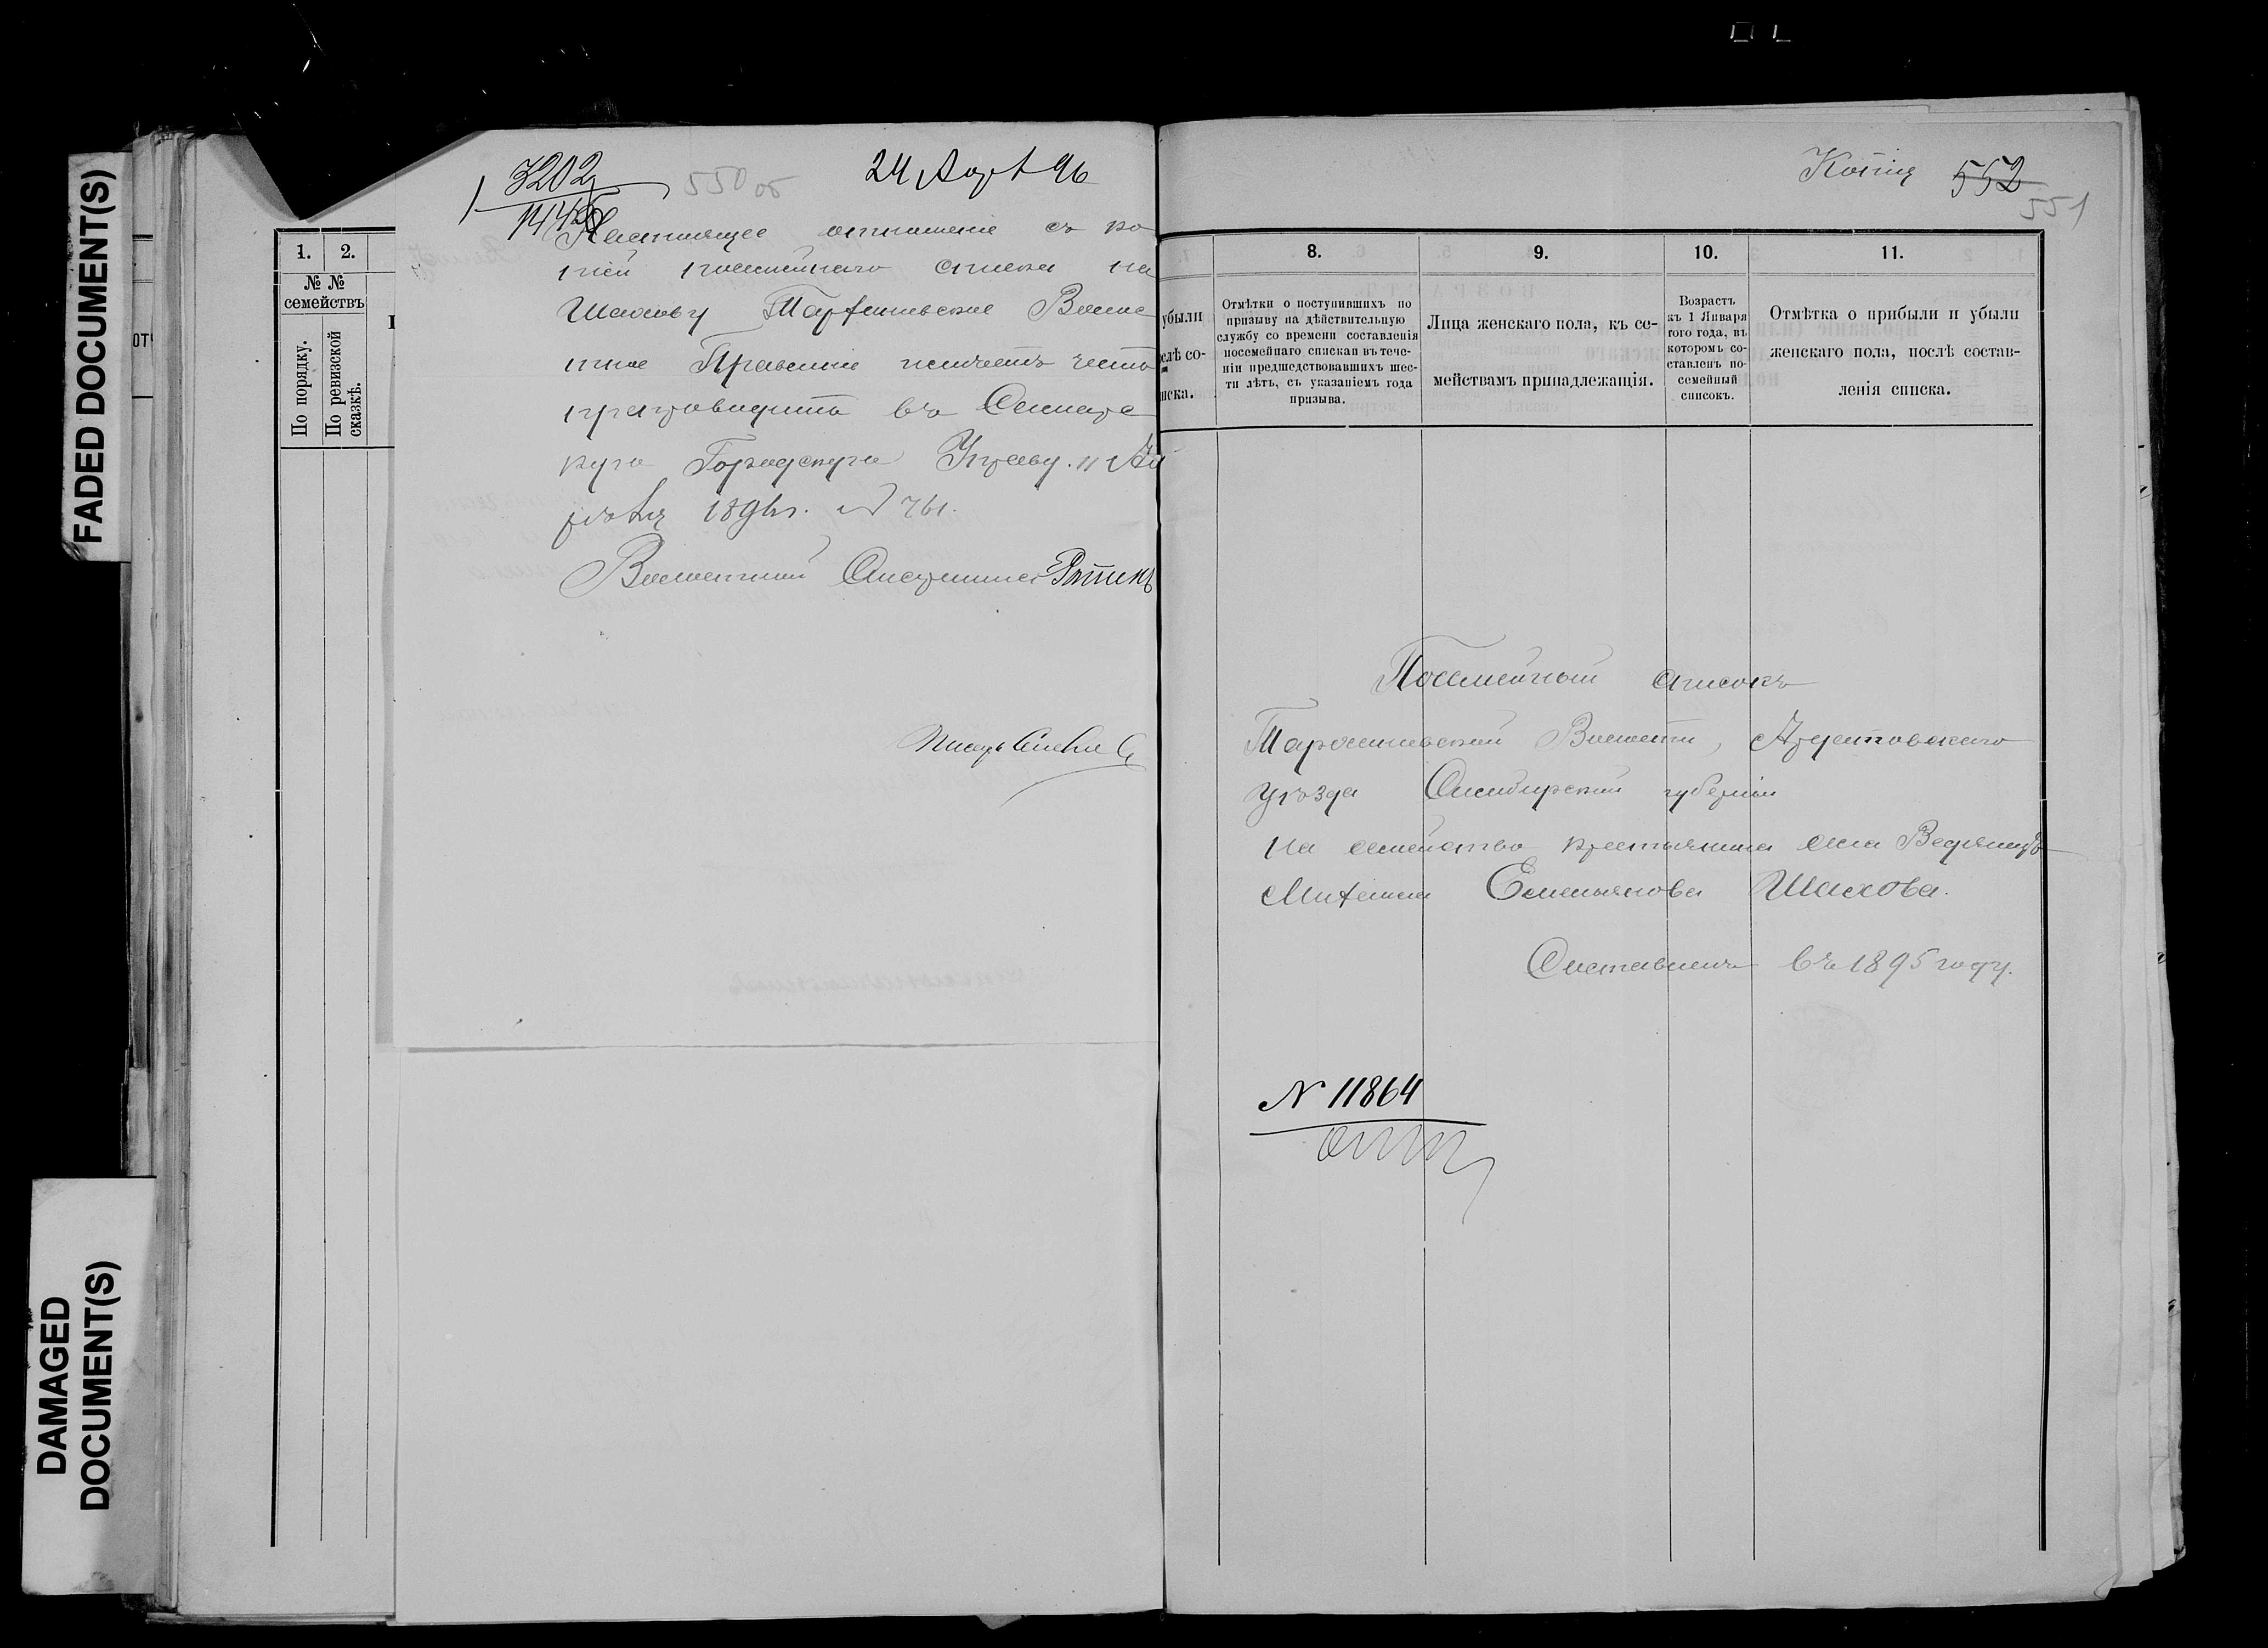 FADED DOCUMENT(S)
DAMAGED
DOCUMENT(S)
1. 2.
№ №
семействъ
По порядку.
По ревизской
сказкѣ.
3202
550 об
24 Апр 96
Настоящее отношеніе съ ко
піей посемейнаго списка на
Шахову Тархановское Волос
тное Правленіе имѣетъ честь
препроводить въ Самарс
кую Городскую Управу. 11 Ап
рѣля 1896 г. № 761.
Волостной Старшина
Писарь
Копія 552
551
убыли
слѣ со-
иска.
8. 9. 10. 11.
Отмѣтки о поступившихъ по
призыву на дѣйствительную
службу со времени составленія
посемейнаго списка въ тече-
ніи предшедствовавшихъ шес-
ти лѣтъ, съ указаніемъ года
призыва.
Лица женскаго пола, къ се-
мействамъ принадлежащія.
Возрастъ
къ 1 Января
того года, въ
которомъ со-
ставленъ по-
семейный
списокъ.
Отмѣтка о прибыли и убыли
женскаго пола, послѣ состав-
ленія списка.
Посемейный списокъ
Тархановской Волости, Ардатовскаго
уѣзда Симбирской губерніи
на семейство крестьянина села
Емельянова Шахова.
Составленъ въ 1895 году.
N 11864